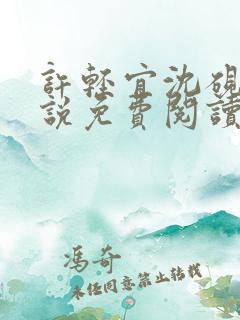 許輕宜沈硯
說免費閱讀
馮奇
未经同意禁止转载